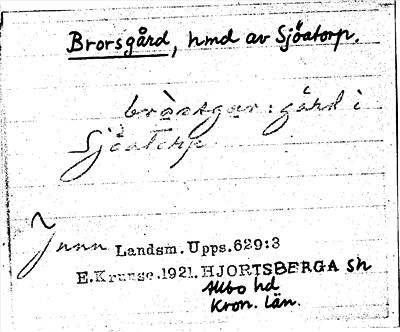 Brorsgård, hmd av Sjöatorp.
: gård i
Sjöatorp
Landsm. Upps. 629:3
E. Krunse. 1921. HJORTSBERGA sn
Allbo hd
Kron. län.